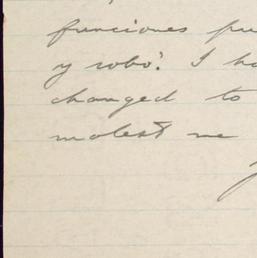 funciones pu
y robo'. I ha
changed to
molest me